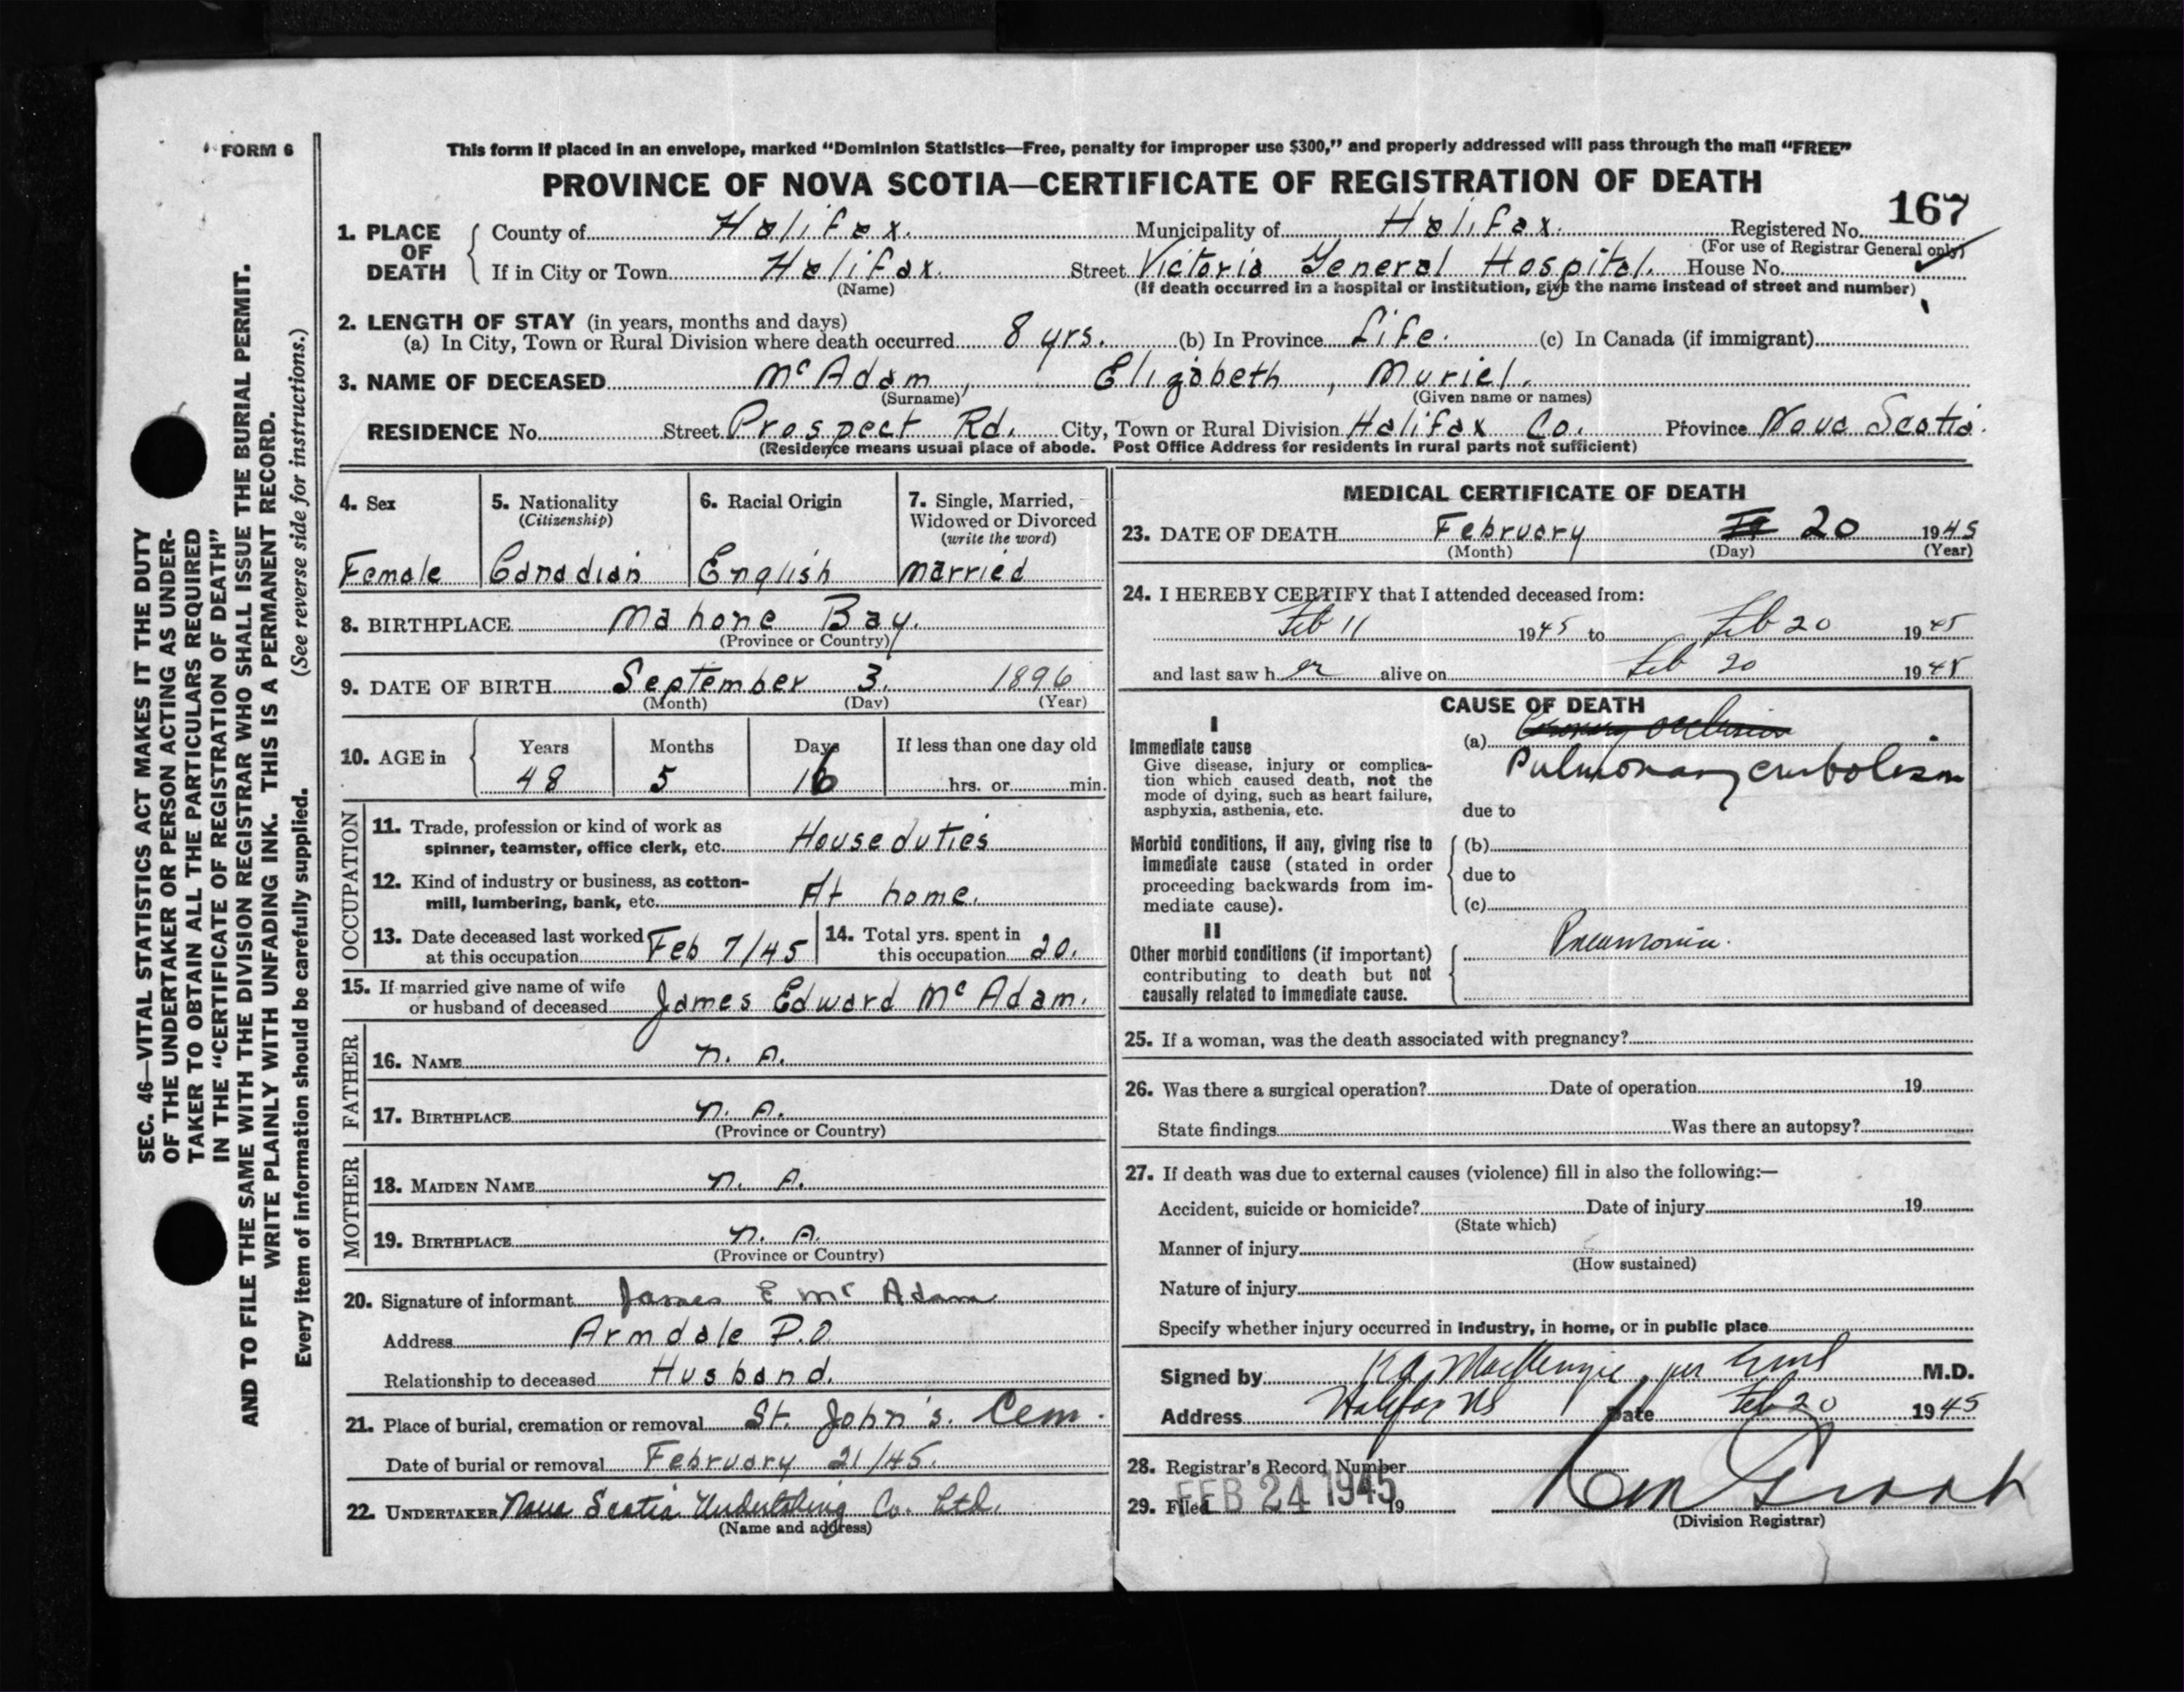 FORM 6
This form if placed in an envelope, marked “Dominion Statistics—Free, penalty for improper use $300,” and properly addressed will pass through the mail “FREE”
PROVINCE OF NOVA SCOTIA—CERTIFICATE OF REGISTRATION OF DEATH
167
1. PLACE OF DEATH
County of Halifax. Municipality of Halifax. Registered No.
(For use of Registrar General only)
If in City or Town Halifax. Street Victoria General Hospital. House No.
(Name) (If death occurred in a hospital or institution, give the name instead of street and number)
2. LENGTH OF STAY (in years, months and days)
(a) In City, Town or Rural Division where death occurred 8 yrs. (b) In Province Life. (c) In Canada (if immigrant)
3. NAME OF DECEASED McAdam, Elizabeth, Muriel.
(Surname) (Given name or names)
RESIDENCE No. Street Prospect Rd. City, Town or Rural Division Halifax Co. Province Nova Scotia.
(Residence means usual place of abode. Post Office Address for residents in rural parts not sufficient)
4. Sex 5. Nationality (Citizenship) 6. Racial Origin 7. Single, Married, Widowed or Divorced (write the word)
Female Canadian English Married
8. BIRTHPLACE Mahone Bay.
(Province or Country)
9. DATE OF BIRTH September 3. 1896
(Month) (Day) (Year)
10. AGE in Years Months Days If less than one day old
48 5 16 hrs. or min.
OCCUPATION
11. Trade, profession or kind of work as
spinner, teamster, office clerk, etc. House duties
12. Kind of industry or business, as cotton-
mill, lumbering, bank, etc. At home.
13. Date deceased last worked
at this occupation Feb 7/45
14. Total yrs. spent in
this occupation 20.
15. If married give name of wife
or husband of deceased James Edward McAdam.
FATHER
16. NAME N. A.
17. BIRTHPLACE N. A.
(Province or Country)
MOTHER
18. MAIDEN NAME N. A.
19. BIRTHPLACE N. A.
(Province or Country)
20. Signature of informant James E McAdam
Address Armdale P.O
Relationship to deceased Husband.
21. Place of burial, cremation or removal St. John's. Cem.
Date of burial or removal February 21/45.
22. UNDERTAKER Nova Scotia Undertaking Co. Ltd.
(Name and address)
MEDICAL CERTIFICATE OF DEATH
23. DATE OF DEATH February 20 1945
(Month) (Day) (Year)
24. I HEREBY CERTIFY that I attended deceased from:
Feb 11 1945 to Feb 20 1945
and last saw her alive on Feb 20 1945
CAUSE OF DEATH
I
Immediate cause
Give disease, injury or complica-
tion which caused death, not the
mode of dying, such as heart failure,
asphyxia, asthenia, etc.
(a) Coronary occlusion
Pulmonary embolism
due to
Morbid conditions, if any, giving rise to
immediate cause (stated in order
proceeding backwards from im-
mediate cause).
(b)
due to
(c)
II
Other morbid conditions (if important)
contributing to death but not
causally related to immediate cause.
Pneumonia.
25. If a woman, was the death associated with pregnancy?
26. Was there a surgical operation? Date of operation 19
State findings Was there an autopsy?
27. If death was due to external causes (violence) fill in also the following:—
Accident, suicide or homicide? Date of injury 19
(State which)
Manner of injury
(How sustained)
Nature of injury
Specify whether injury occurred in industry, in home, or in public place
Signed by K A MacKenzie, per M.D.
Address Halifax NS Date Feb 20 1945
28. Registrar's Record Number
29. Filed FEB 24 1945 19
(Division Registrar)
SEC. 46—VITAL STATISTICS ACT MAKES IT THE DUTY
OF THE UNDERTAKER OR PERSON ACTING AS UNDER-
TAKER TO OBTAIN ALL THE PARTICULARS REQUIRED
IN THE “CERTIFICATE OF REGISTRATION OF DEATH”
AND TO FILE THE SAME WITH THE DIVISION REGISTRAR WHO SHALL ISSUE THE BURIAL PERMIT.
WRITE PLAINLY WITH UNFADING INK. THIS IS A PERMANENT RECORD.
Every item of information should be carefully supplied. (See reverse side for instructions.)